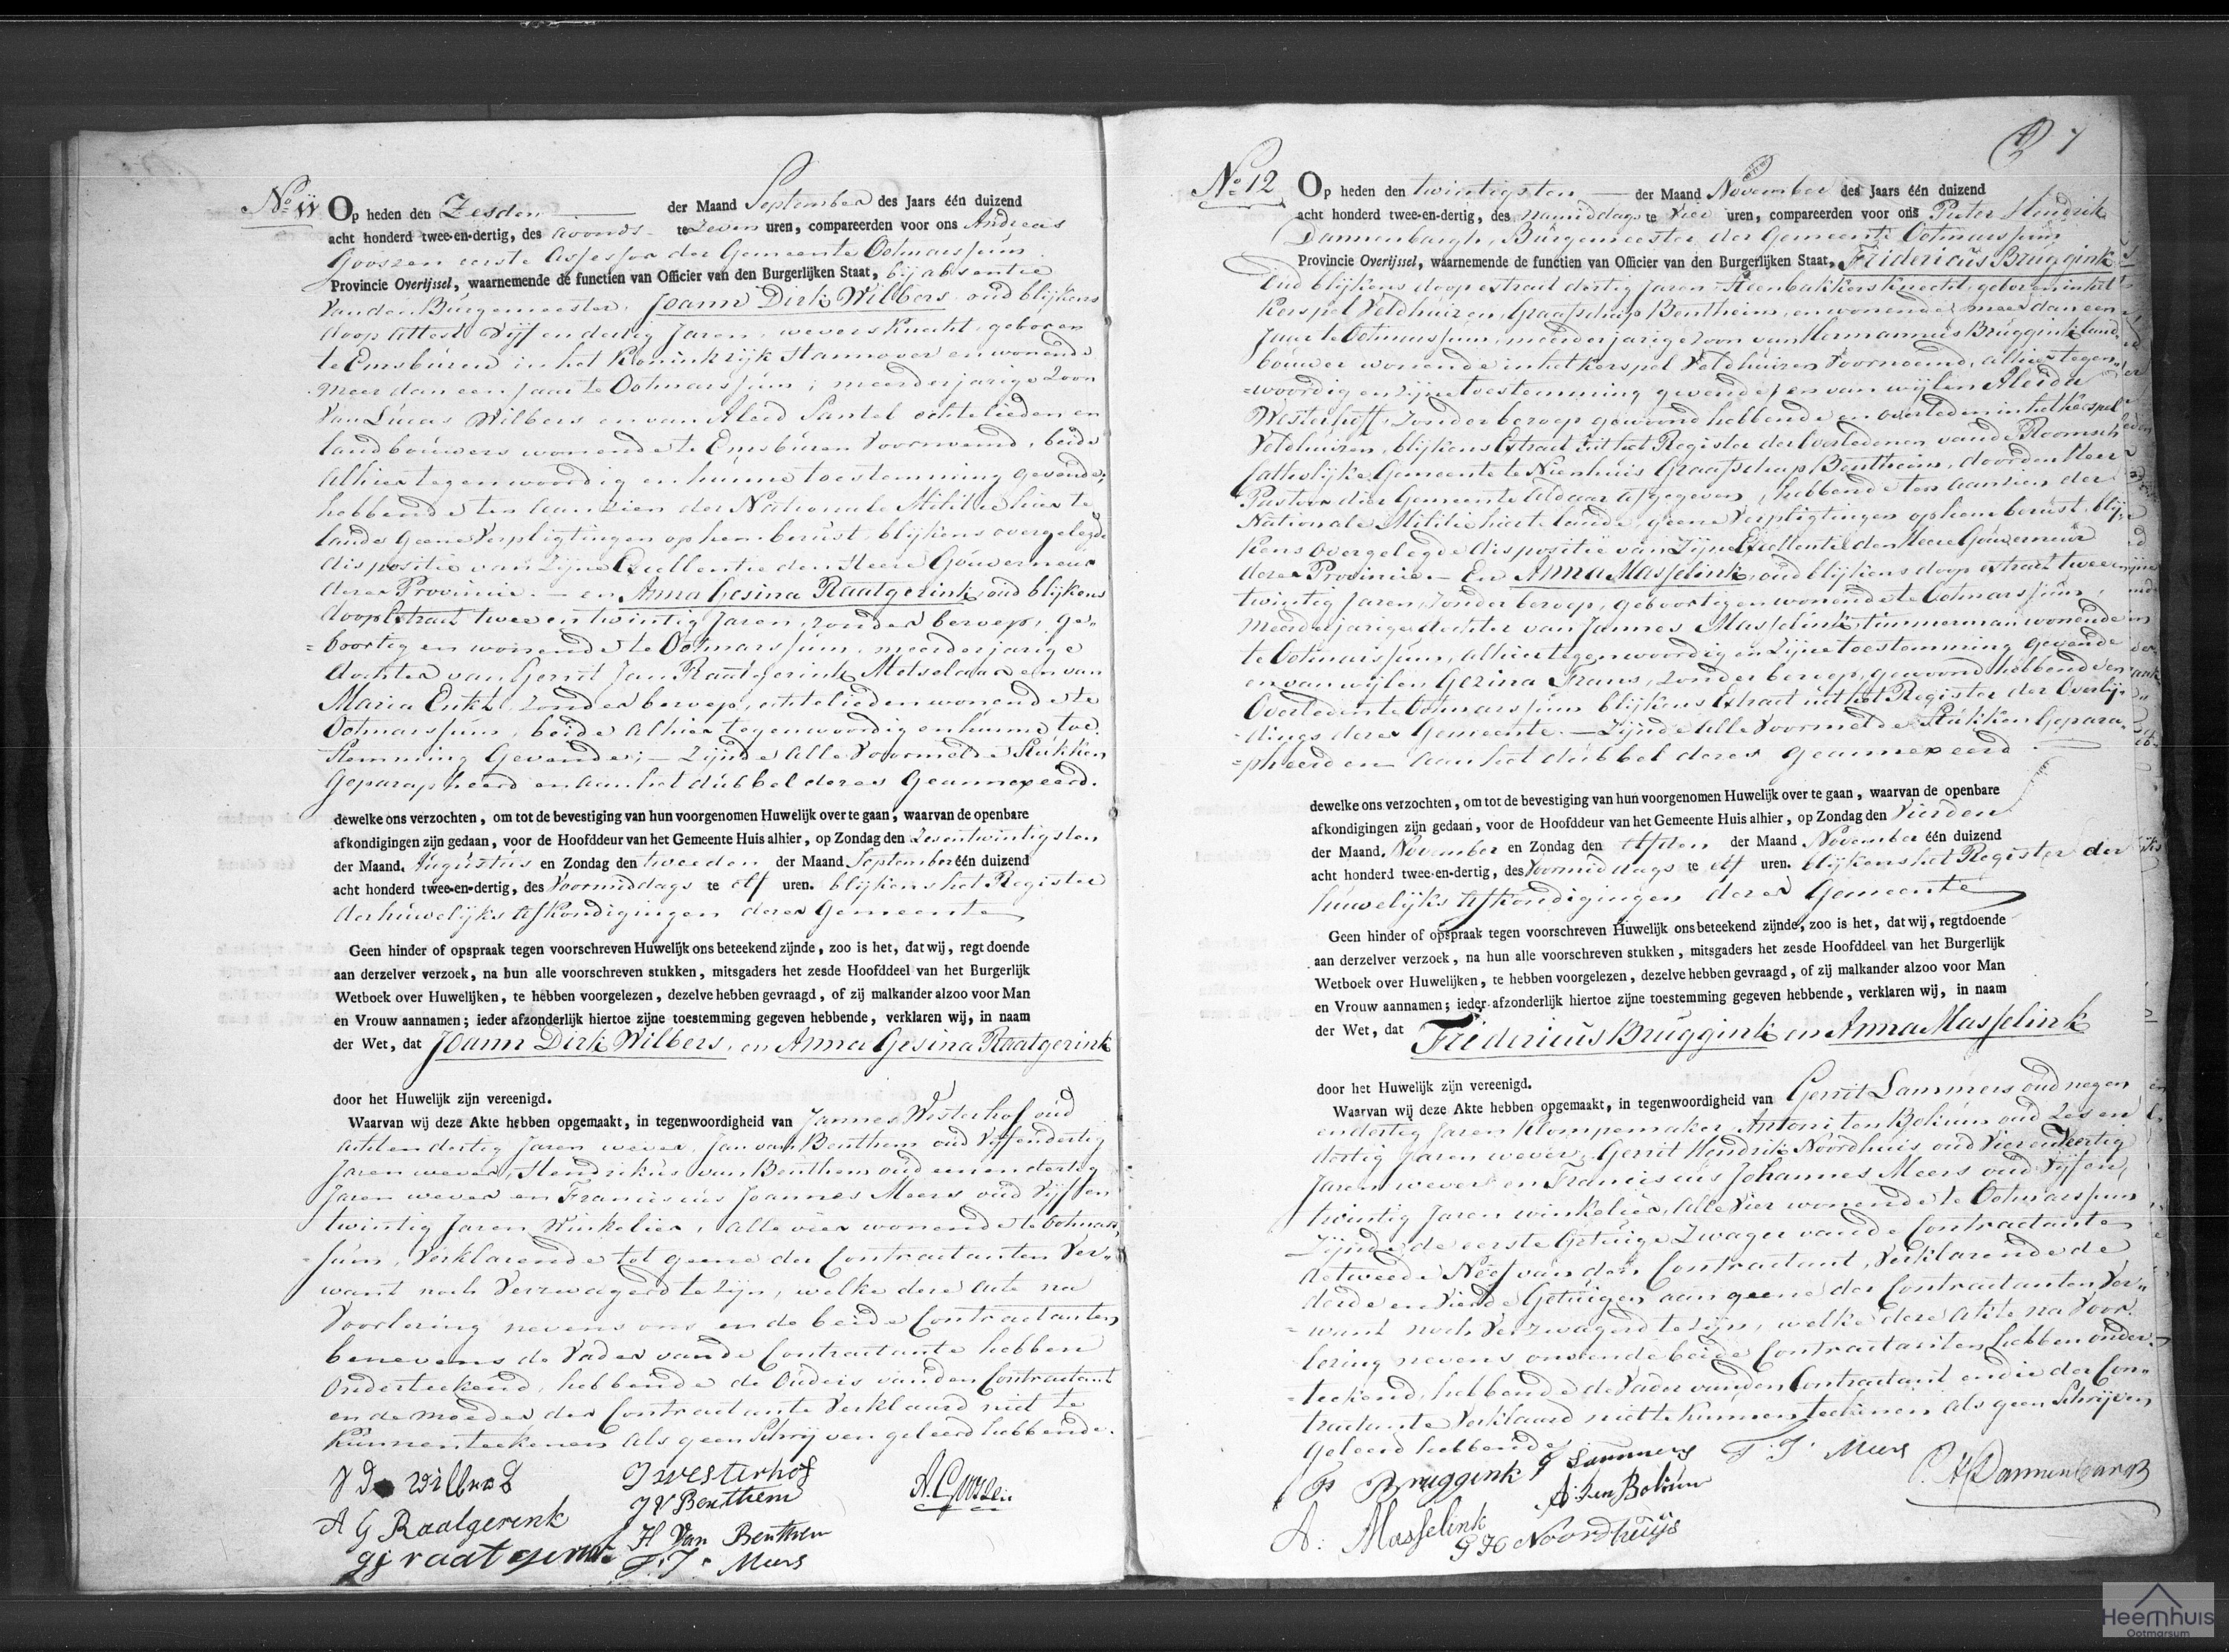 No 11 Op heden den Zesden der Maand September des Jaars één duizend
acht honderd twee-en-dertig, des avonds te Zeven uren, compareerden voor ons Andreas
Gooszen eerste Assessor der Gemeente Ootmarssum
Provincie Overijssel, waarnemende de functien van Officier van den Burgerlijken Staat, bij absentie
van den Burgemeester, Joann Dirk Wilbers, oud blijkens
doop attest Vijf en dertig Jaren, weversknecht, geboren
te Emsbüren in het Koninkrijk Hannover en wonende
meer dan een jaar te Ootmarssum; meerderjarige Zoon
van Lucas Wilbers en van Aleid Santel echtelieden en
landbouwers wonende te Emsbüren Voornoemd, beide
alhier tegenwoordig en hunne toestemming gevende;
hebbende ten aanzien der Nationale Militie hier te
lande geene Verpligtingen op hem berust, blijkens overgelegde
dispositie van Zijne Excellentie den Heere Gouverneur
dezer Provincie. — en Anna Gesina Raatgerink, oud blijkens
doop Extract twee en twintig Jaren, zonder beroep, ge-
=boortig en wonende te Ootmarssum, meerderjarige
dochter van Gerrit Jan Raatgerink Metselaar en van
Maria Enkt, zonder beroep, echtelieden wonende te
Ootmarssum, beide alhier tegenwoordig en hunne toe-
stemming Gevende; — Zijnde alle Voormelde Stukken
Geparapheerd en aan het dubbel dezer Geannexeerd.
dewelke ons verzochten, om tot de bevestiging van hun voorgenomen Huwelijk over te gaan, waarvan de openbare
afkondigingen zijn gedaan, voor de Hoofddeur van het Gemeente Huis alhier, op Zondag den Zesentwintigsten
der Maand Augustus en Zondag den tweeden der Maand September één duizend
acht honderd twee-en-dertig, des Voormiddags te elf uren. blijkens het Register
der huwelijks afkondigingen dezer Gemeente
Geen hinder of opspraak tegen voorschreven Huwelijk ons beteekend zijnde, zoo is het, dat wij, regt doende
aan derzelver verzoek, na hun alle voorschreven stukken, mitsgaders het zesde Hoofddeel van het Burgerlijk
Wetboek over Huwelijken, te hebben voorgelezen, dezelve hebben gevraagd, of zij malkander alzoo voor Man
en Vrouw aannamen; ieder afzonderlijk hiertoe zijne toestemming gegeven hebbende, verklaren wij, in naam
der Wet, dat Joann Dirk Wilbers, en Anna Gesina Raatgerink
door het Huwelijk zijn vereenigd.
Waarvan wij deze Akte hebben opgemaakt, in tegenwoordigheid van Jannes Westerhof oud
achtendertig Jaren wever, Jan van Benthem oud Vijfendertig
Jaren wever, Hendrikus van Benthem oud eenendertig
Jaren wever en Franciscus Joannes Meers oud Vijf en
twintig Jaren Winkelier, alle vier wonende te Ootmars-
=sum, Verklarende tot geene der Contractanten Ver-
want noch Verzwagerd te zijn, welke deze acte na
Voorlezing nevens ons en de beide Contractanten
benevens de Vader van de Contractante hebben
Onderteekend, hebbende de Ouders van den Contractant
en de moeder der Contractante Verklaard niet te
kunnen teekenen als geen Schrijven geleerd hebbende.
J D Wilbers
J Westerhof
A. Goosze
J V Benthem
A G Raatgerink
H Van Benthem
gj raatgerink
F. J. Meers
7
No 12 Op heden den twintigsten der Maand November des Jaars één duizend
acht honderd twee-en-dertig, des namiddags te Vier uren, compareerden voor ons Pieter Hendrik
Dannenbargh, Burgemeester der Gemeente Ootmarssum
Provincie Overijssel, waarnemende de functien van Officier van den Burgerlijken Staat, Fridericus Bruggink
Oud blijkens doop extract dertig Jaren Steenbakkersknecht, geboren in het
Kerspel Veldhuizen, Graafschap Bentheim, en wonende meer dan een
Jaar te Ootmarssum, meerderjarige zoon van Hermannus Bruggink land-
bouwer wonende in het kerspel Veldhuizen Voornoemd, alhier tegen-
=woordig en zijne toestemming gevende en van wijlen Aleida
Westerhoff, zonder beroep gewoond hebbende en overleden in het kerspel
Veldhuizen, blijkens Extract uit het Register der Overledenen van de Roomsch
Catholijke Gemeente te Nienhuis Graafschap Bentheim, door den Heer
Pastoor dier Gemeente aldaar afgegeven, hebbende ten aanzien der
Nationale Militie hier te lande, geene Verpligtingen op hem berust, blij-
kens overgelegde dispositie van Zijne Excellentie den Heere Gouverneur
dezer Provincie. — En Anna Masselink, oud blijkens doop extract twee en
twintig Jaren, zonder beroep, geboortig en wonende te Ootmarssum,
Meerderjarige dochter van Jannes Masselink timmerman wonende
te Ootmarssum, alhier tegenwoordig en Zijne toestemming gevende
en van wijlen Gezina Frans, zonder beroep, gewoond hebbende en
Overleden te Ootmarssum blijkens Extract uit het Register der Overlij-
=dings dezer Gemeente. — Zijnde alle Voormelde Stukken Gepara-
=pheerd en aan het dubbel dezer geannexeerd.
dewelke ons verzochten, om tot de bevestiging van hun voorgenomen Huwelijk over te gaan, waarvan de openbare
afkondigingen zijn gedaan, voor de Hoofddeur van het Gemeente Huis alhier, op Zondag den Vierden
der Maand November en Zondag den Elfden der Maand November één duizend
acht honderd twee-en-dertig, des Voormiddags te elf uren. blijkens het Register der
huwelijks afkondigingen dezer Gemeente
Geen hinder of opspraak tegen voorschreven Huwelijk ons beteekend zijnde, zoo is het, dat wij, regtdoende
aan derzelver verzoek, na hun alle voorschreven stukken, mitsgaders het zesde Hoofddeel van het Burgerlijk
Wetboek over Huwelijken, te hebben voorgelezen, dezelve hebben gevraagd, of zij malkander alzoo voor Man
en Vrouw aannamen; ieder afzonderlijk hiertoe zijne toestemming gegeven hebbende, verklaren wij, in naam
der Wet, dat Fridericus Bruggink en Anna Masselink
door het Huwelijk zijn vereenigd.
Waarvan wij deze Akte hebben opgemaakt, in tegenwoordigheid van Gerrit Lammers oud negen
en dertig Jaren Klompemaker, Antoni ten Bokum oud Zes en
dertig Jaren wever, Gerrit Hendrik Noordhuis oud Vier en Veertig
Jaren wever en Franciscus Johannes Meers oud Vijf en
twintig Jaren winkelier, alle Vier wonende te Ootmarssum
Zijnde de eerste Getuige Zwager van de Contractante
de tweede Neef van den Contractant, Verklarende de
derde en Vierde Getuigen aan geene der Contractanten Ver-
=want noch Verzwagerd te zijn, welke deze Akte na Voor-
lezing nevens ons en de beide Contractanten hebben onder-
=teekend, hebbende de Vader van den Contractant en die der Con-
tractante Verklaard niet te kunnen teekenen als geen Schrijven
Geleerd hebbende
F Bruggink
G Lammers
F. J. Meers
P. H. Dannenbargh
A. ten Bokum
A. Masselink
G H Noordhuijs
Heemhuis
Ootmarsum